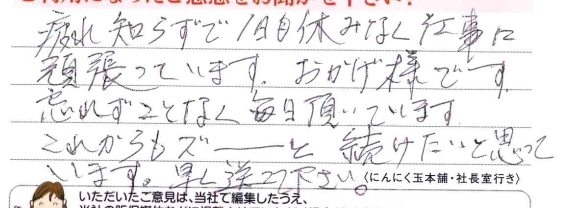 ご利用になったご感想をお聞かせ下さい!
疲れ知らずで1日休みなく仕事に
頑張っています。おかげ様です。
忘れずことなく毎日頂いています
これからもズ――――と続けたいと思って
います。早く送って下さい。
〈にんにく玉本舗・社長室行き〉
いただいたご意見は、当社で編集したうえ、